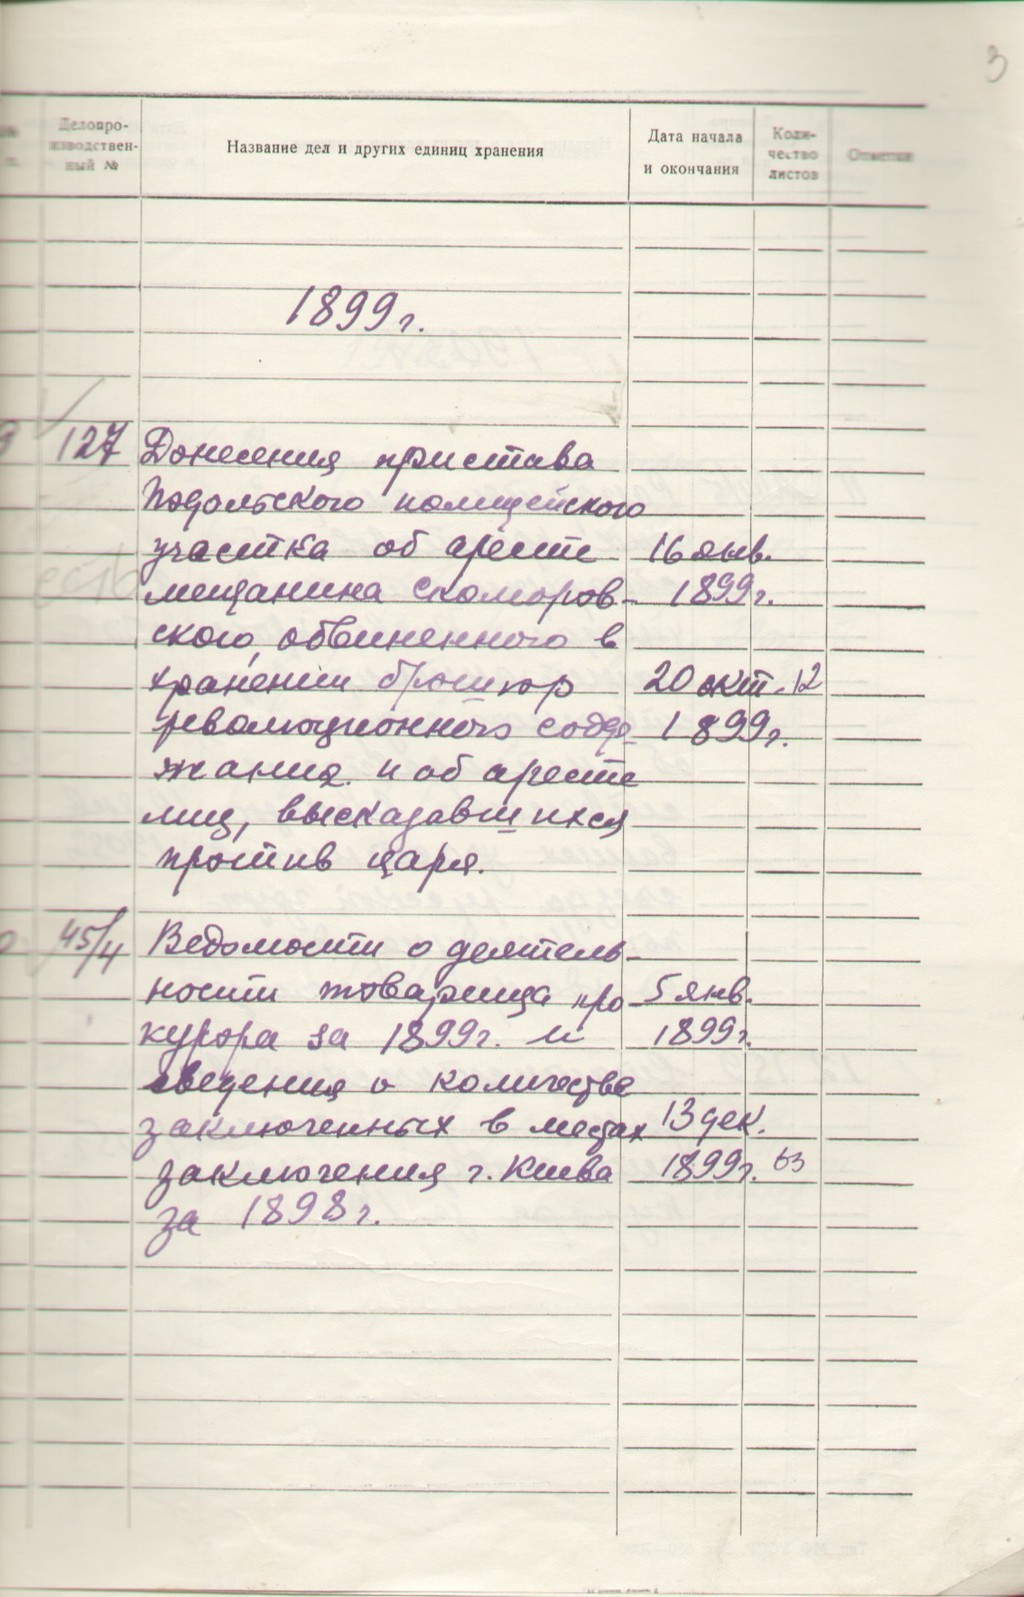 3
Делопро-
изводствен-
ный №
Название дел и других единиц хранения
Дата начала
и окончания
Коли-
чество
листов
Отметки
1899г.
127 Донесения пристава
Подольского полицейского
участка об аресте 16 янв.
мещанина Скоморов- 1899г.
ского, обвиненного в
хранении брошюр 20 окт. 12
революционного содер- 1899г.
жания и об аресте
лиц, высказавшихся
против царя.
45/4 Ведомости о деятель-
ности товарища про- 5 янв.
курора за 1899г. и 1899г.
сведения о количестве
заключенных в местах 13 дек.
заключения г. Киева 1899г. 63
за 1898г.